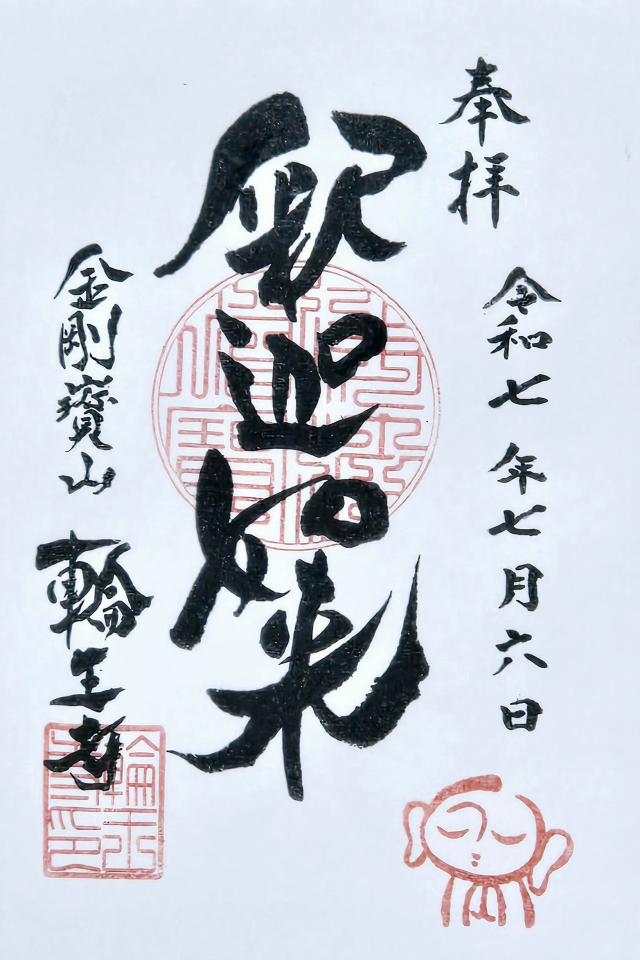 奉拝
令和七年七月六日
釈迦如来
金剛寳山
輪王寺